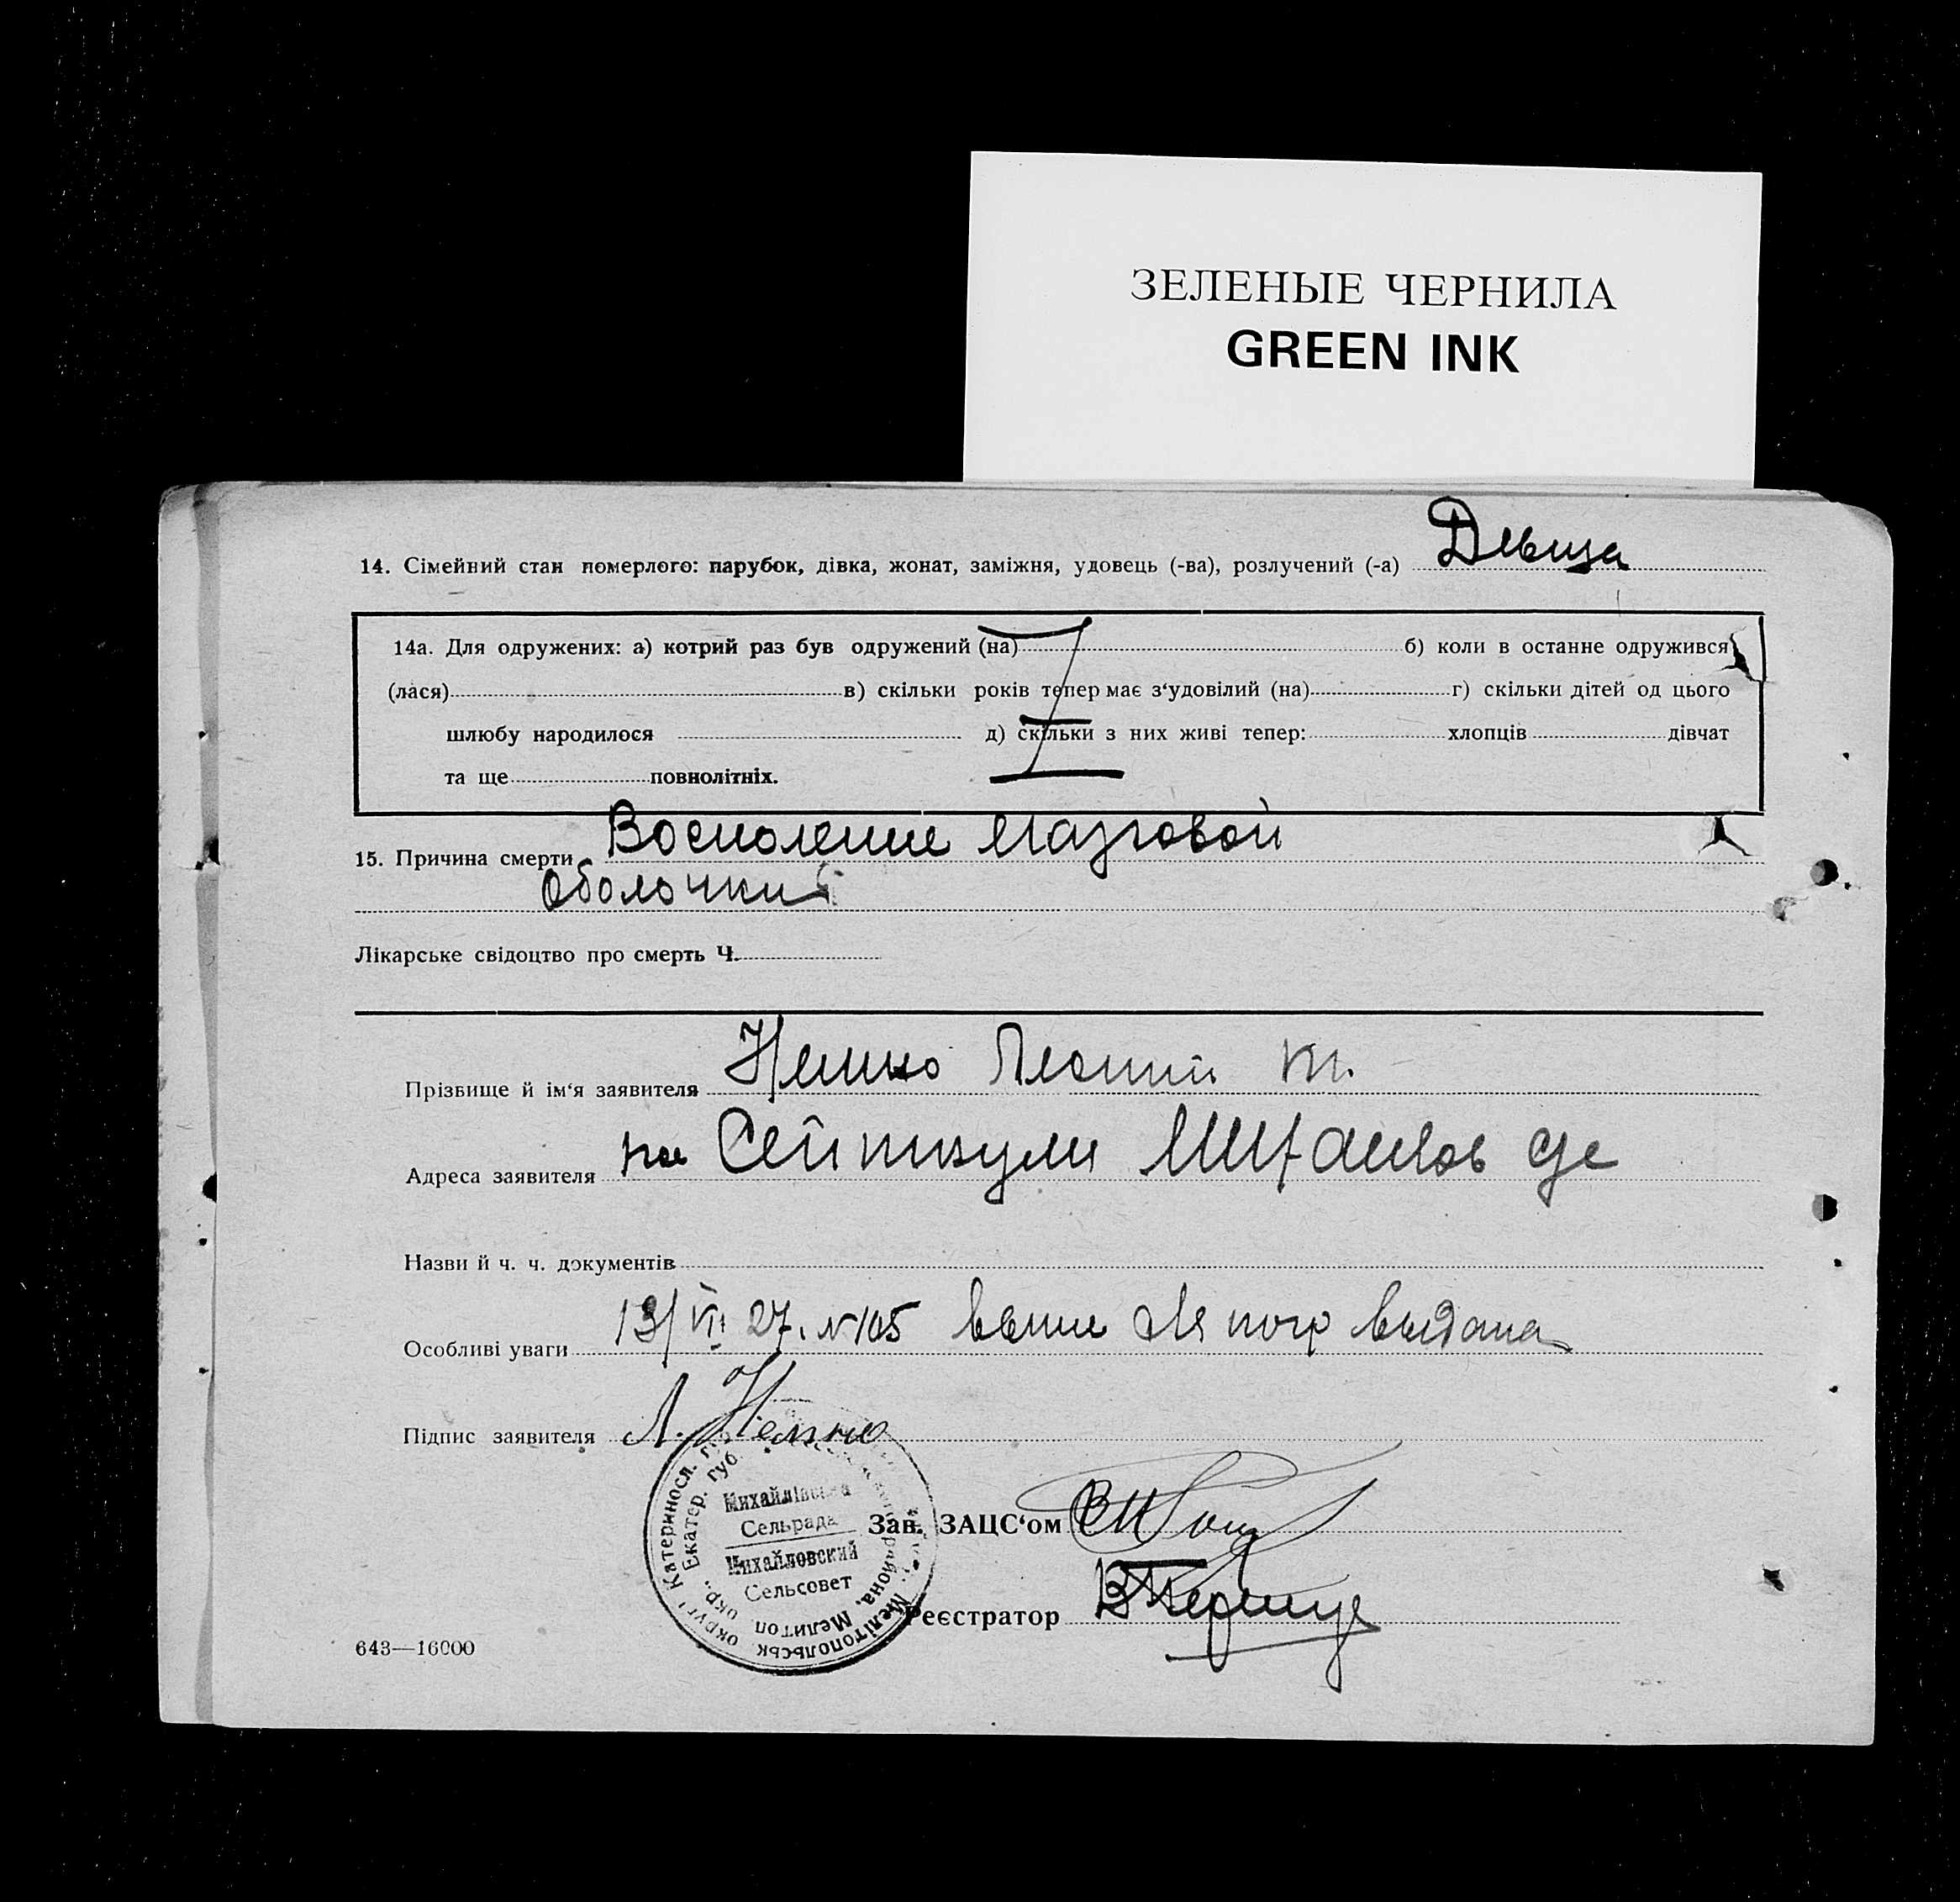 ЗЕЛЕНЫЕ ЧЕРНИЛА
GREEN INK
14. Сімейний стан померлого: парубок, дівка, жонат, заміжня, удовець (-ва), розлучений (-а) Девица
14а. Для одружених: а) котрий раз був одружений (на) б) коли в останне одружився
(лася) в) скільки років тепер має з‘удовілий (на) г) скільки дітей од цього
шлюбу народилося д) скільки з них живі тепер: хлопців дівчат
та ще повнолітніх.
15. Причина смерти Восполение Мазговой
Оболочки
Лікарське свідоцтво про смерть Ч.
Прізвище й ім‘я заявителя
Адреса заявителя
Назви й ч. ч. документів
Особливі уваги 13/VII 27. №105 выдана
Підпис заявителя Л.
Катериносл. губ. Мелітопольськ. округ
Екатер. губ. района, Мелитоп. окр.
Михайлівська
Сельрада
Михайловский
Сельсовет
Зав. ЗАЦС‘ом
Реєстратор
643—16000